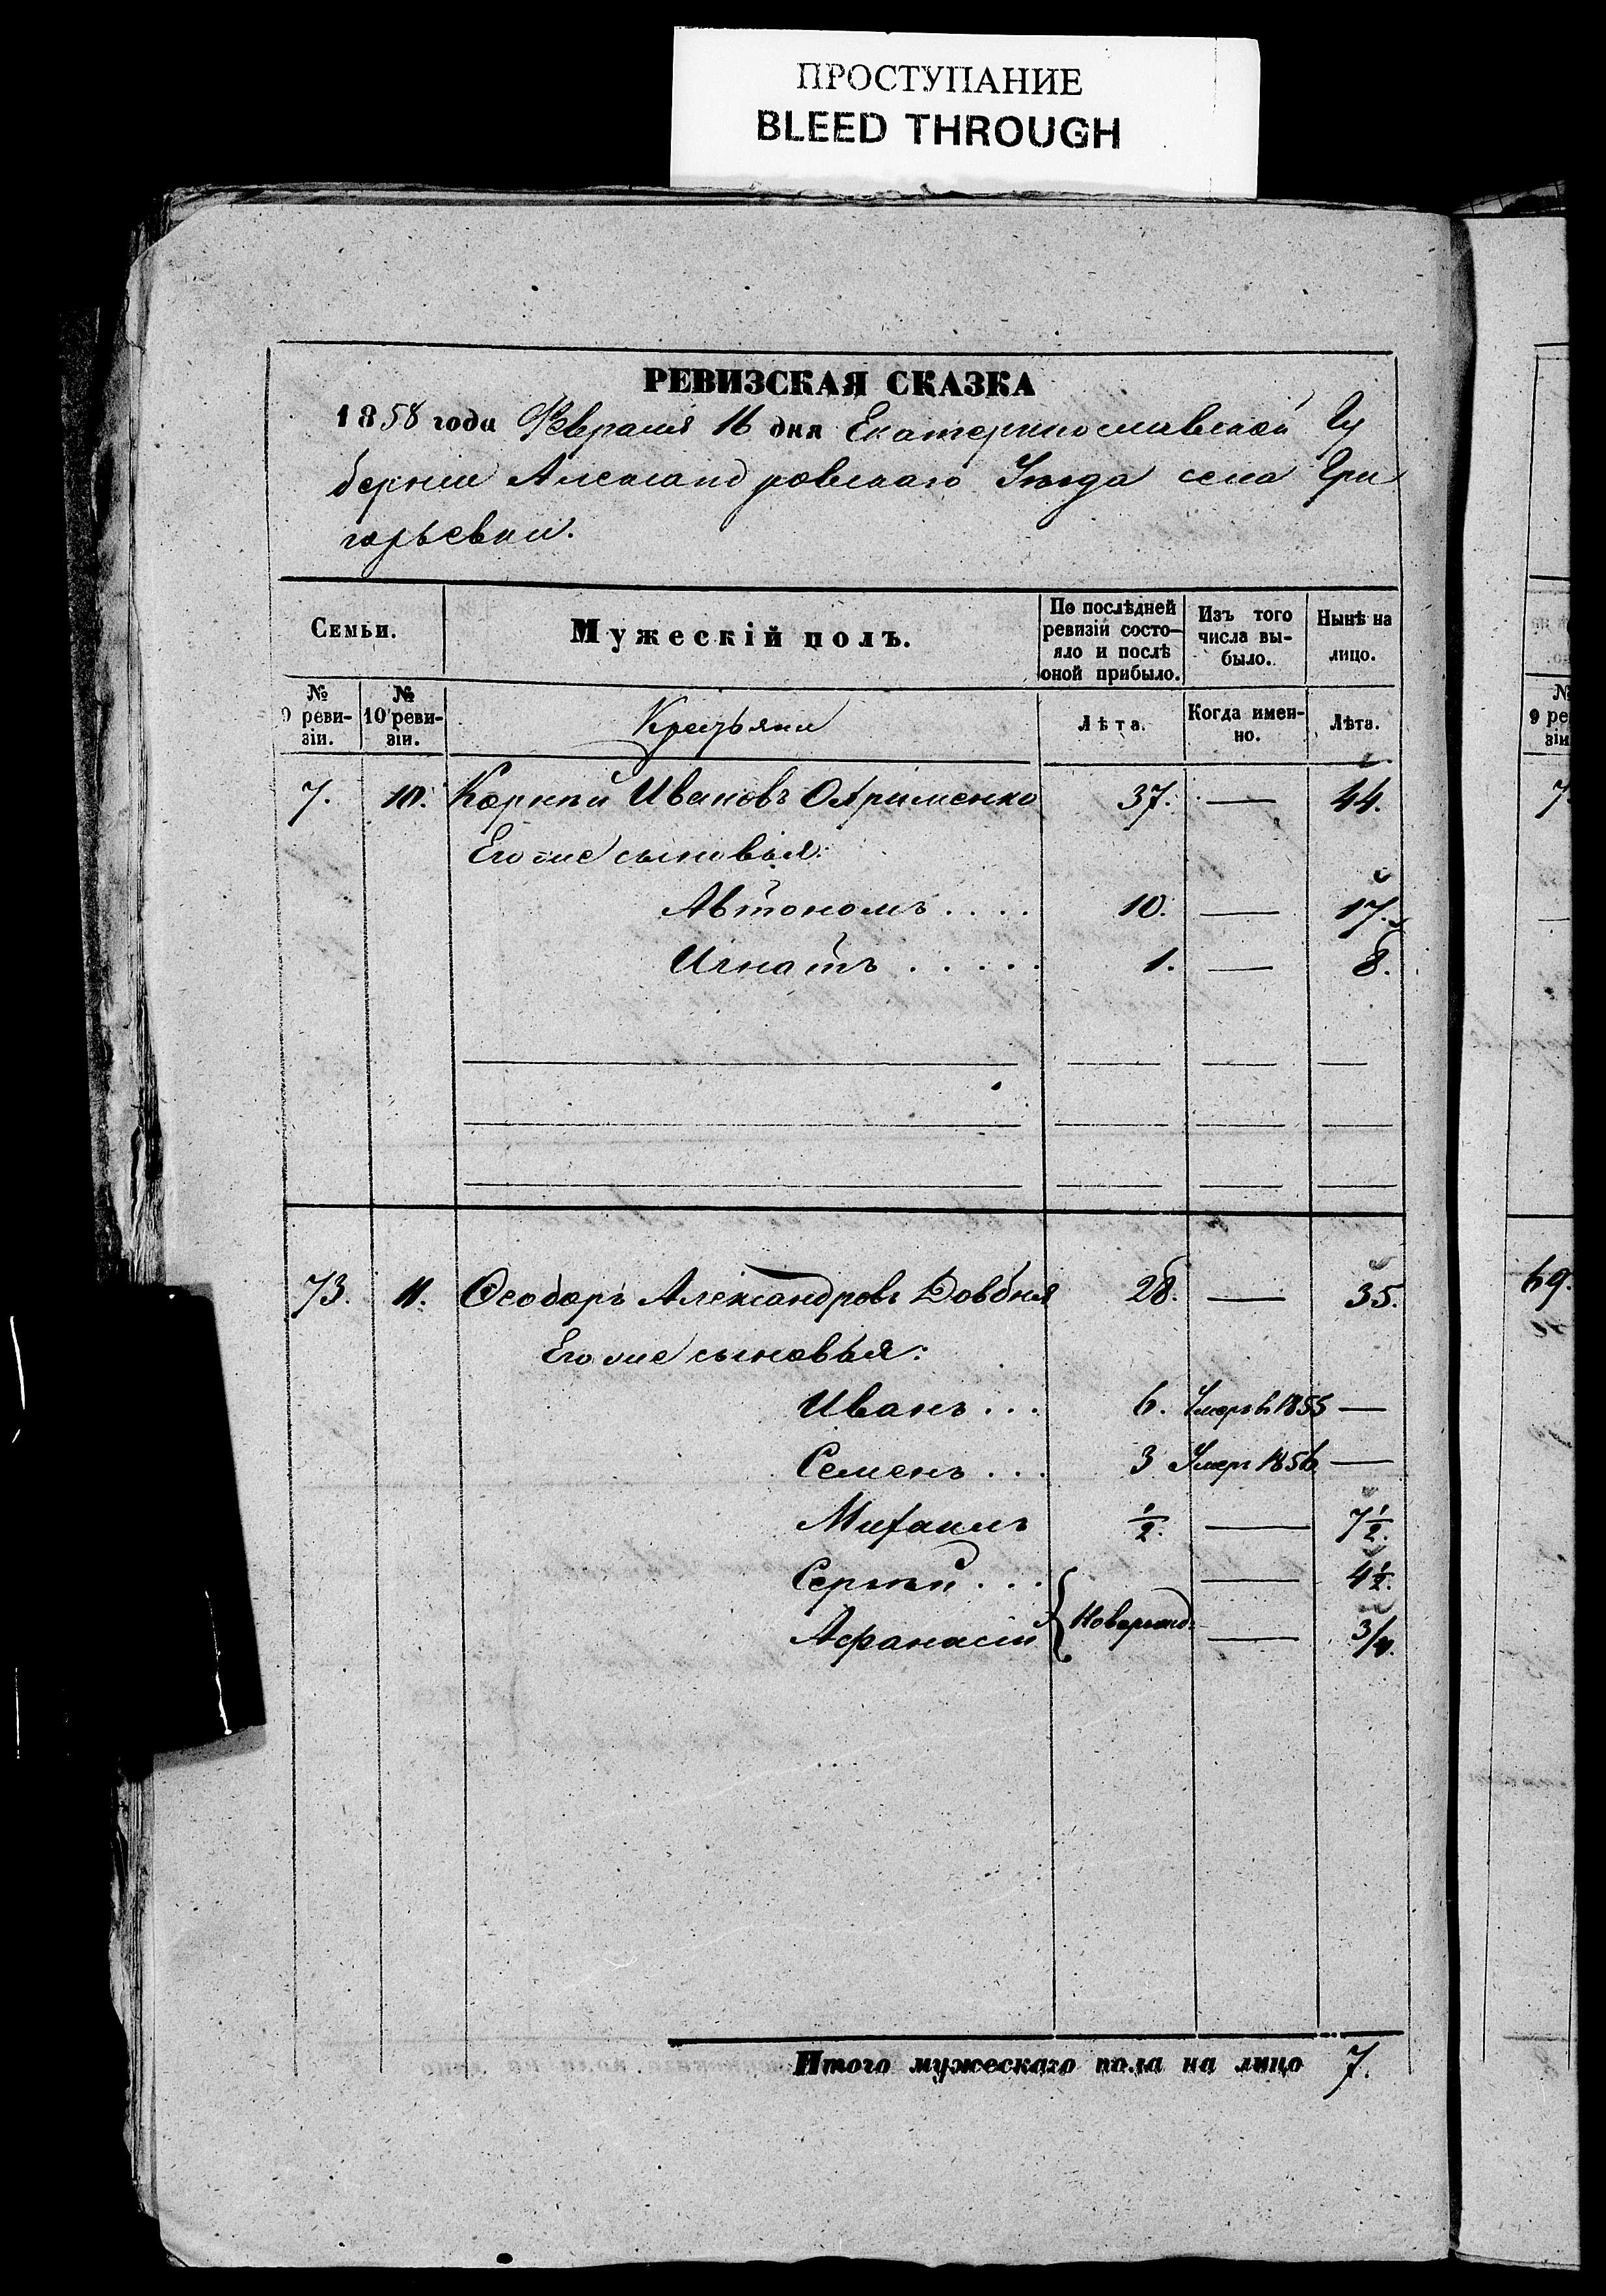 ПРОСТУПАНИЕ
BLEED THROUGH
РЕВИЗСКАЯ СКАЗКА
1858 года Февраля 16 дня Екатеринославской Гу
берніи Александровскаго Уѣзда села Гри
горьевки.
Семьи.
Мужескій полъ.
По послѣдней
ревизіи состо-
яло и послѣ
оной прибыло.
Изъ того
числа вы-
было.
Нынѣ на
лицо.
№
9 реви-
зіи.
№
10 реви-
зіи.
Крестьяни
Лѣта.
Когда имен-
но.
Лѣта.
7. 10. Корнѣй Ивановъ Охрименко 37. — 44.
Его же сыновья:
Автономъ .... 10. — 17.
Игнатъ ..... 1. — 8.
73. 11. Ѳеодоръ Александровъ Довбня 28. — 35.
Его же сыновья:
Иванъ ... 6. Умеръ в 1855 —
Семенъ ... 3 Умеръ 1856 —
Михаилъ 1/2. — 7 1/2.
Сергѣй ... — 4 1/2.
Афанасій Новорожд: — 3/м.
Итого мужескаго пола на лицо 7.
№
9 ре
зіи
7
69.